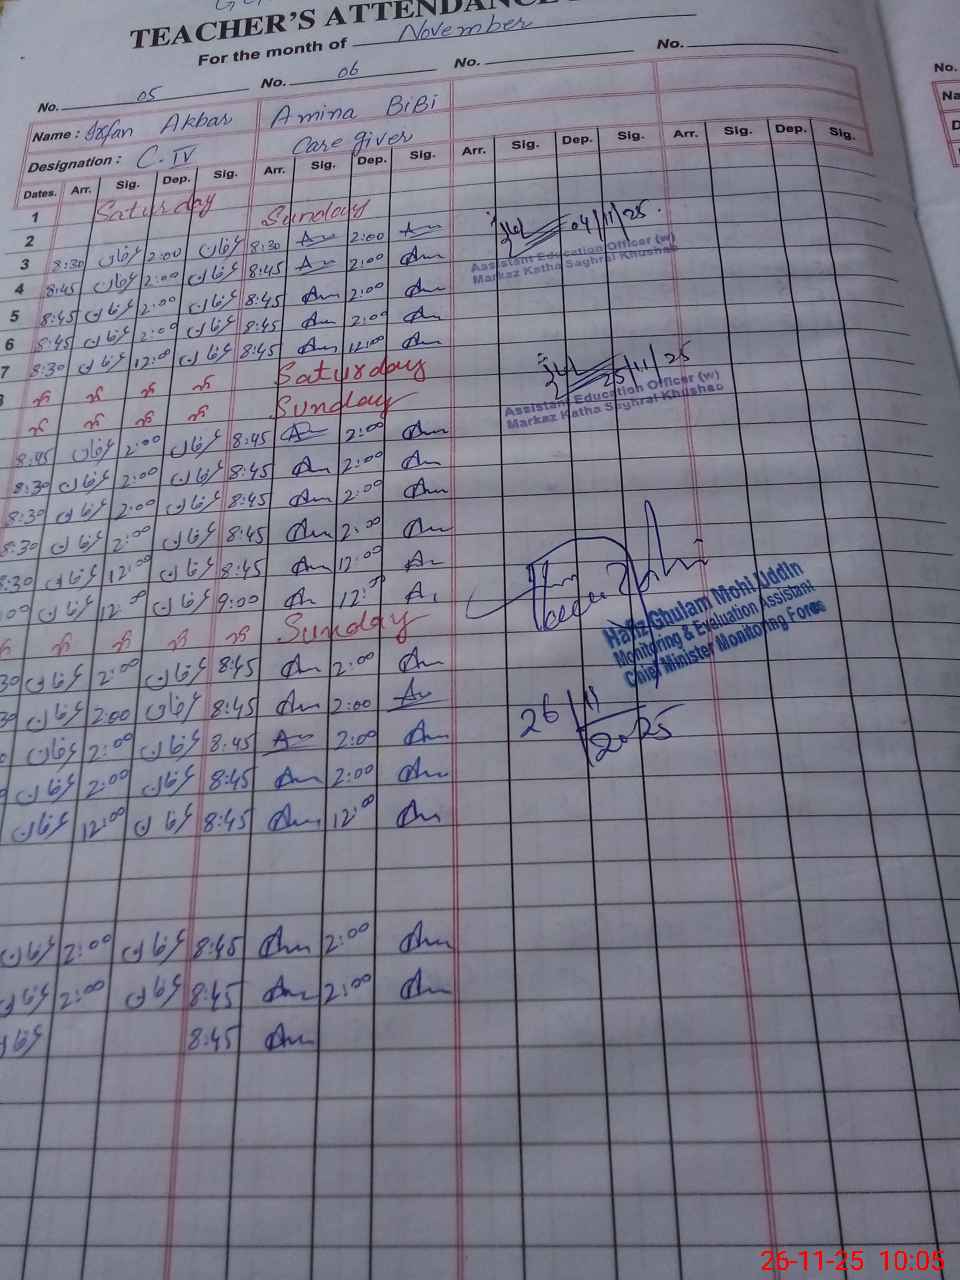 TEACHER'S ATTENDANCE
For the month of November
No. 05 No. 06 No. No.
Name : Irfan Akbar Amina BiBi
Designation : C.IV Care giver
Dates. Arr. Sig. Dep. Sig. Arr. Sig. Dep. Sig. Arr. Sig. Dep. Sig. Arr. Sig. Dep. Sig.
1 Saturday Sunday
2
3 8:30 عرفان 2:00 عرفان 8:30 2:00
4 8:45 عرفان 2:00 عرفان 8:45 2:00
5 8:45 عرفان 2:00 عرفان 8:45 2:00
6 8:45 عرفان 2:00 عرفان 8:45 2:00
7 8:30 عرفان 12:00 عرفان 8:45 12:00
Saturday
Sunday
8:45 عرفان 2:00 عرفان 8:45 2:00
8:30 عرفان 2:00 عرفان 8:45 2:00
8:30 عرفان 2:00 عرفان 8:45 2:00
8:30 عرفان 2:00 عرفان 8:45 2:00
8:30 عرفان 12:00 عرفان 8:45 12:00
:00 عرفان 12:00 عرفان 9:00 12:00
Sunday
30 عرفان 2:00 عرفان 8:45 2:00
30 عرفان 2:00 عرفان 8:45 2:00
عرفان 2:00 عرفان 8:45 2:00
عرفان 2:00 عرفان 8:45 2:00
عرفان 12:00 عرفان 8:45 12:00
عرفان 2:00 عرفان 8:45 2:00
عرفان 2:00 عرفان 8:45 2:00
عرفان 8:45
04/11/25
Assistant Education Officer (w)
Markaz Katha Saghral Khushab
25/11/25
Assistant Education Officer (w)
Markaz Katha Saghral Khushab
Hafiz Ghulam Mohi Uddin
Monitoring & Evaluation Assistant
Chief Minister Monitoring Force
26/11
2025
No.
Na
D
26-11-25 10:05